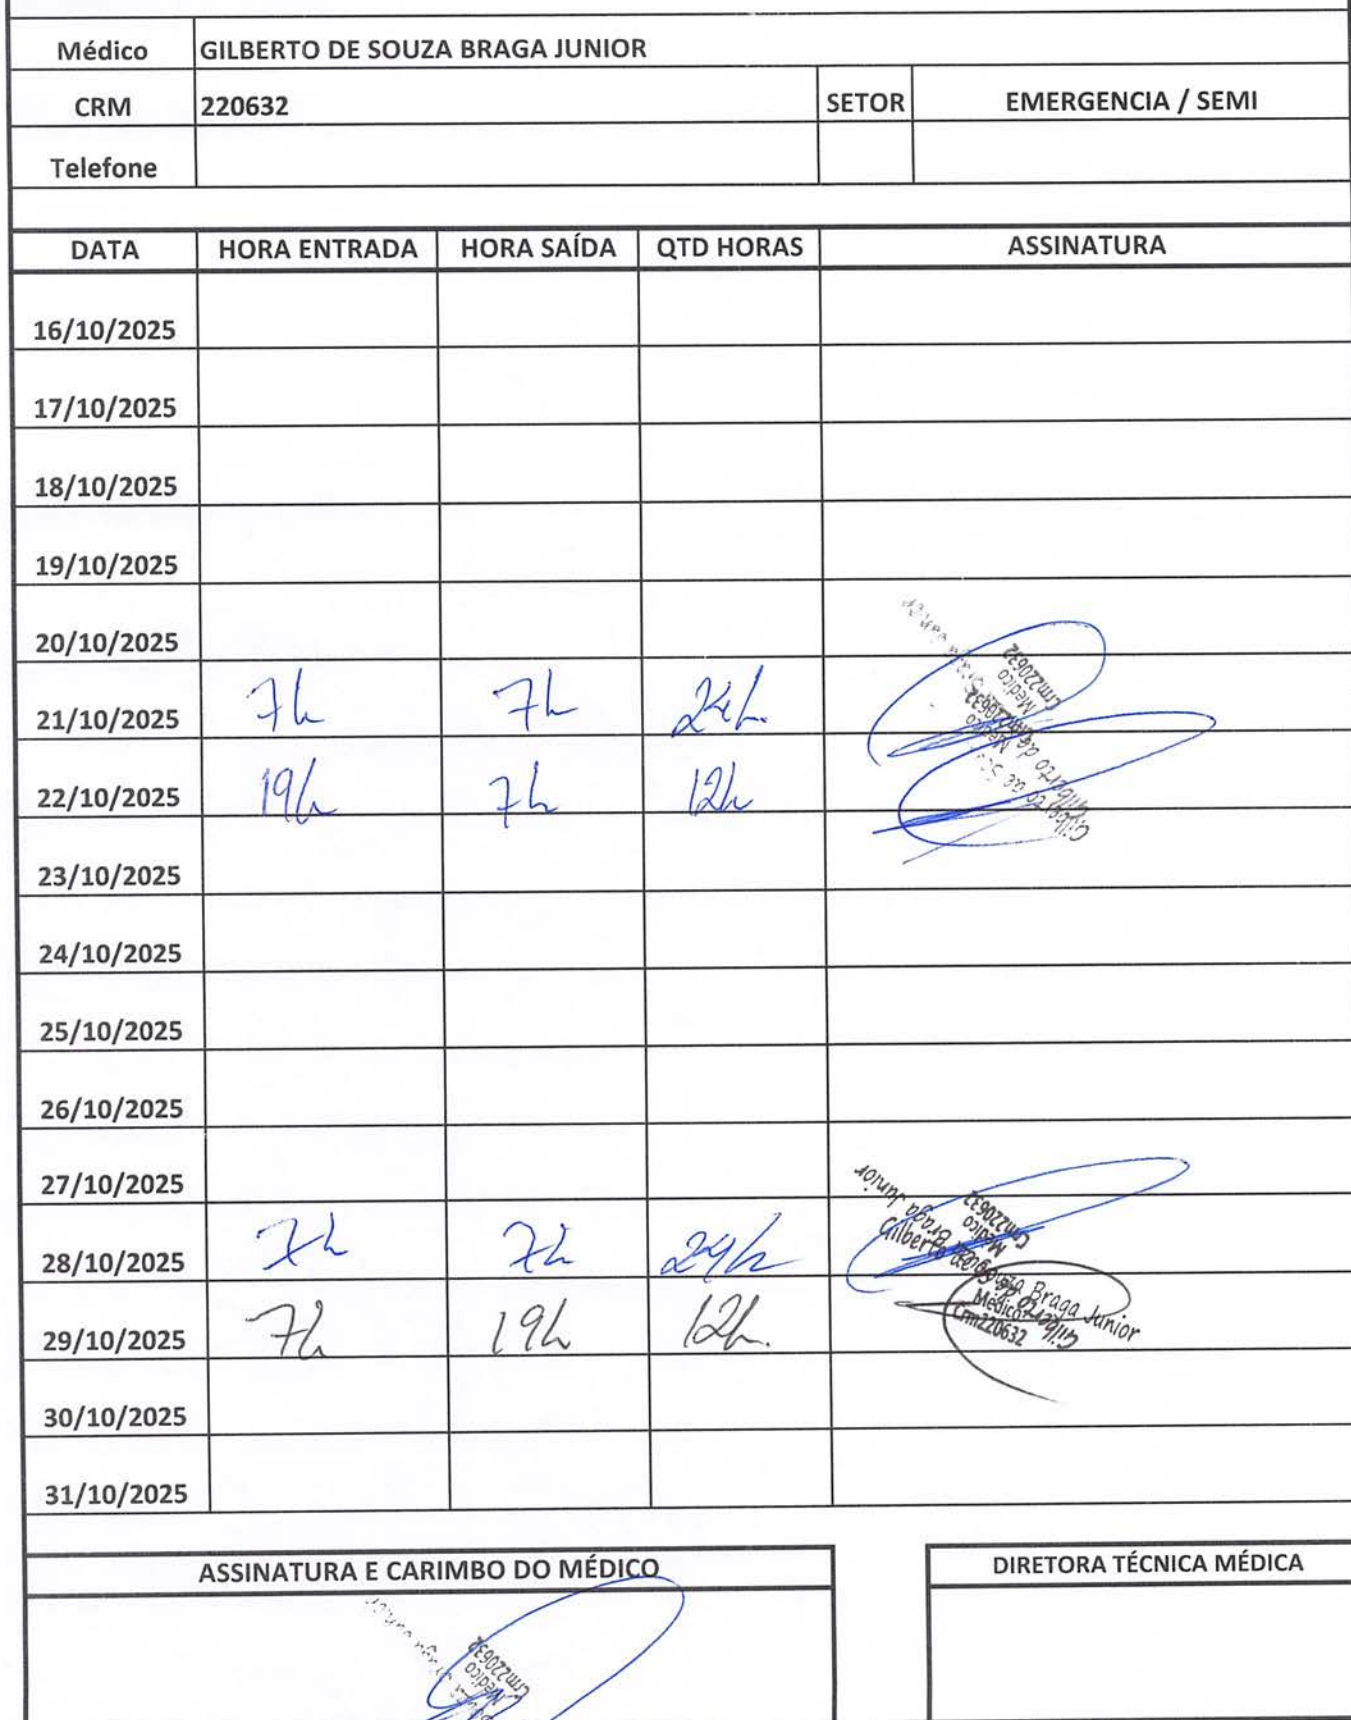 Médico GILBERTO DE SOUZA BRAGA JUNIOR
CRM 220632 SETOR EMERGENCIA / SEMI
Telefone
DATA HORA ENTRADA HORA SAÍDA QTD HORAS ASSINATURA
16/10/2025
17/10/2025
18/10/2025
19/10/2025
20/10/2025
21/10/2025 7h 7h 24h. Gilberto de Souza Braga Junior Médico Crm220632
22/10/2025 19h 7h 12h Gilberto de Médico Crm220632
23/10/2025
24/10/2025
25/10/2025
26/10/2025
27/10/2025
28/10/2025 7h 7h 24h Gilberto de Souza Braga Junior Médico Crm220632
29/10/2025 7h 19h 12h. Gilberto de Souza Braga Junior Médico Crm220632
30/10/2025
31/10/2025
ASSINATURA E CARIMBO DO MÉDICO DIRETORA TÉCNICA MÉDICA
Crm220632
Médico